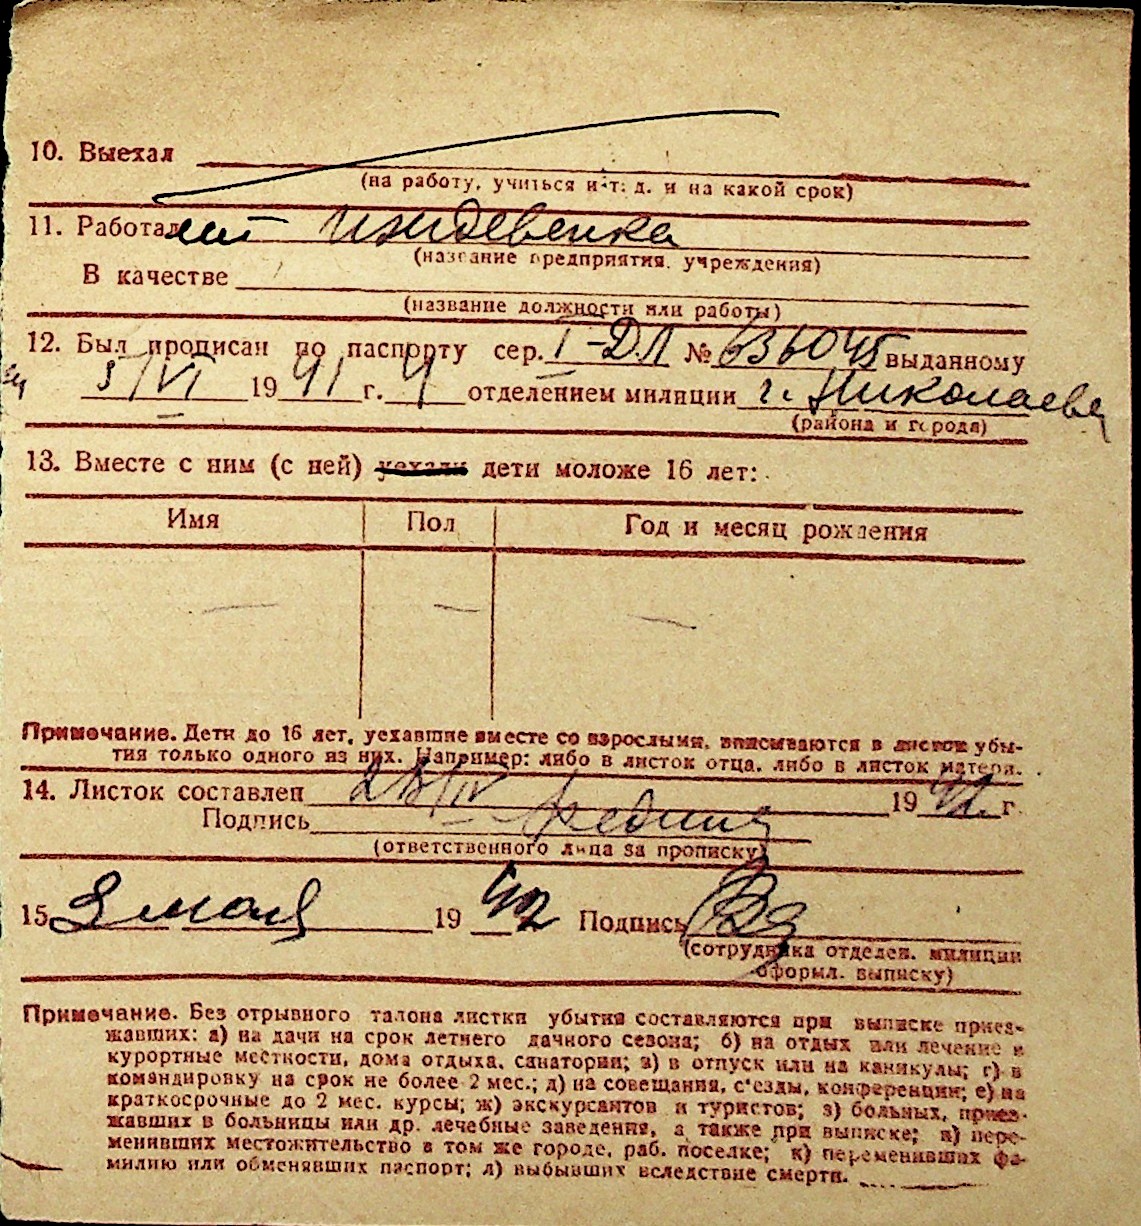 10. Выехал
(на работу, учиться и т. д. и на какой срок)
11. Работал нет иждевенка
(название предприятия, учреждения)
В качестве
(название должности или работы)
12. Был прописан по паспорту сер. I-ДЛ № 636045 выданному
3/VI 1941 г. 4 отделением милиции г. Николаева
(района и города)
13. Вместе с ним (с ней) уехали дети моложе 16 лет:
Имя Пол Год и месяц рождения
— — —
Примечание. Дети до 16 лет, уехавшие вместе со взрослыми, вписываются в листок убы-
тия только одного из них. Например: либо в листок отца, либо в листок матери.
14. Листок составлен /IV 1942 г.
Подпись
(ответственного лица за прописку)
15 3 мая 1942 Подпись
(сотрудника отделен. милиции
оформл. выписку)
Примечание. Без отрывного талона листки убытия составляются при выписке приез-
жавших: а) на дачи на срок летнего дачного сезона; б) на отдых или лечение в
курортные местности, дома отдыха, санатории; в) в отпуск или на каникулы; г) в
командировку на срок не более 2 мес.; д) на совещания, с'езды, конференции; е) на
краткосрочные до 2 мес. курсы; ж) экскурсантов и туристов; з) больных, приез-
жавших в больницы или др. лечебные заведения, а также при выписке; и) пере-
менивших местожительство в том же городе, раб. поселке; к) переменивших фа-
милию или обменявших паспорт; л) выбывших вследствие смерти.